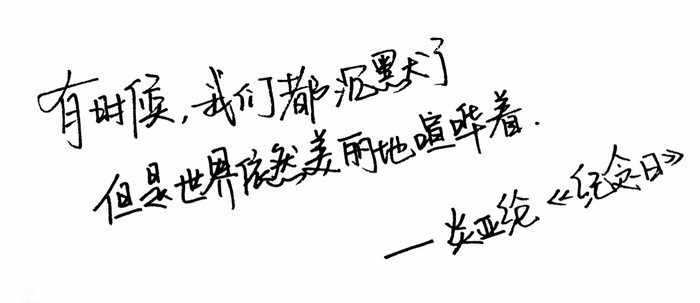 有时候,我们都沉默了
但是世界依然美丽地喧哗着.
—炎亚纶《纪念日》